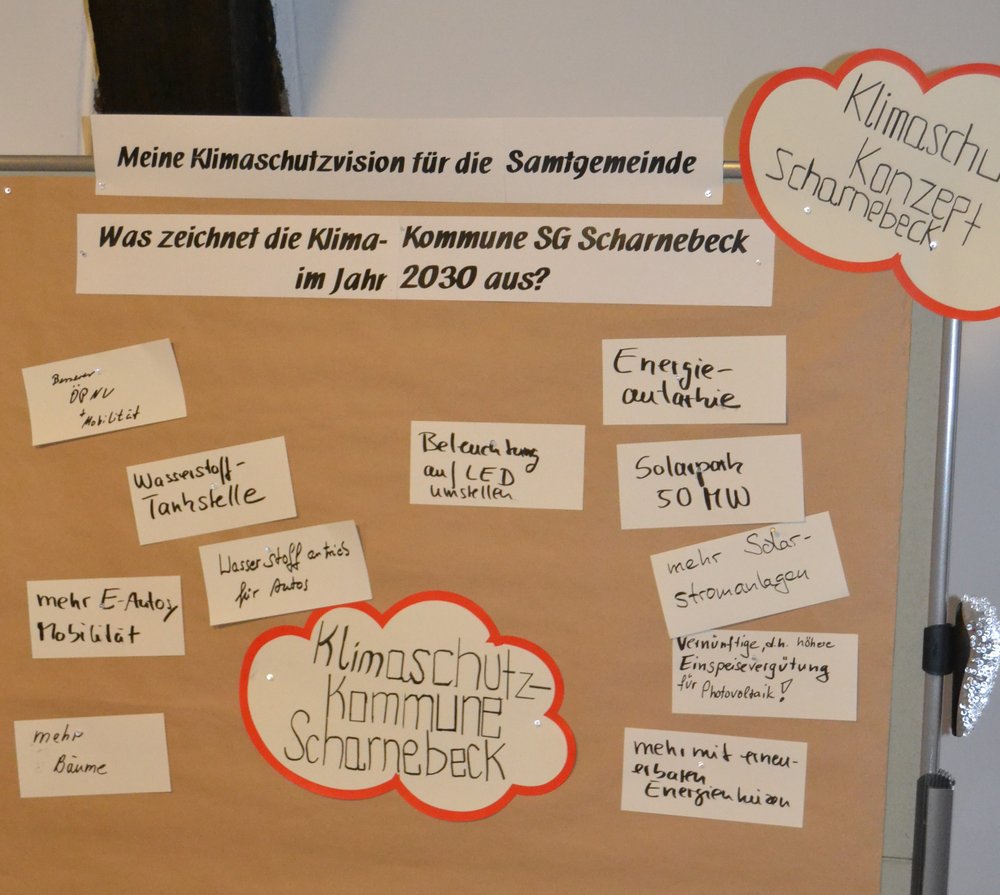 Meine Klimaschutzvision für die Samtgemeinde
Was zeichnet die Klima- Kommune SG Scharnebeck
im Jahr 2030 aus?
Klimaschu
Konzept
Scharnebeck
Besserer
ÖPNV
+ Mobilität
Wasserstoff-
Tankstelle
Wasserstoffantrieb
für Autos
mehr E-Autos
Mobilität
mehr
Bäume
Beleuchtung
auf LED
umstellen
Energie-
autarkie
Solarpark
50 MW
mehr Solar-
stromanlagen
Vernünftige, d.h. höhere
Einspeisevergütung
für Photovoltaik!
mehr mit erneu-
erbaren
Energien heizen
Klimaschutz-
Kommune
Scharnebeck